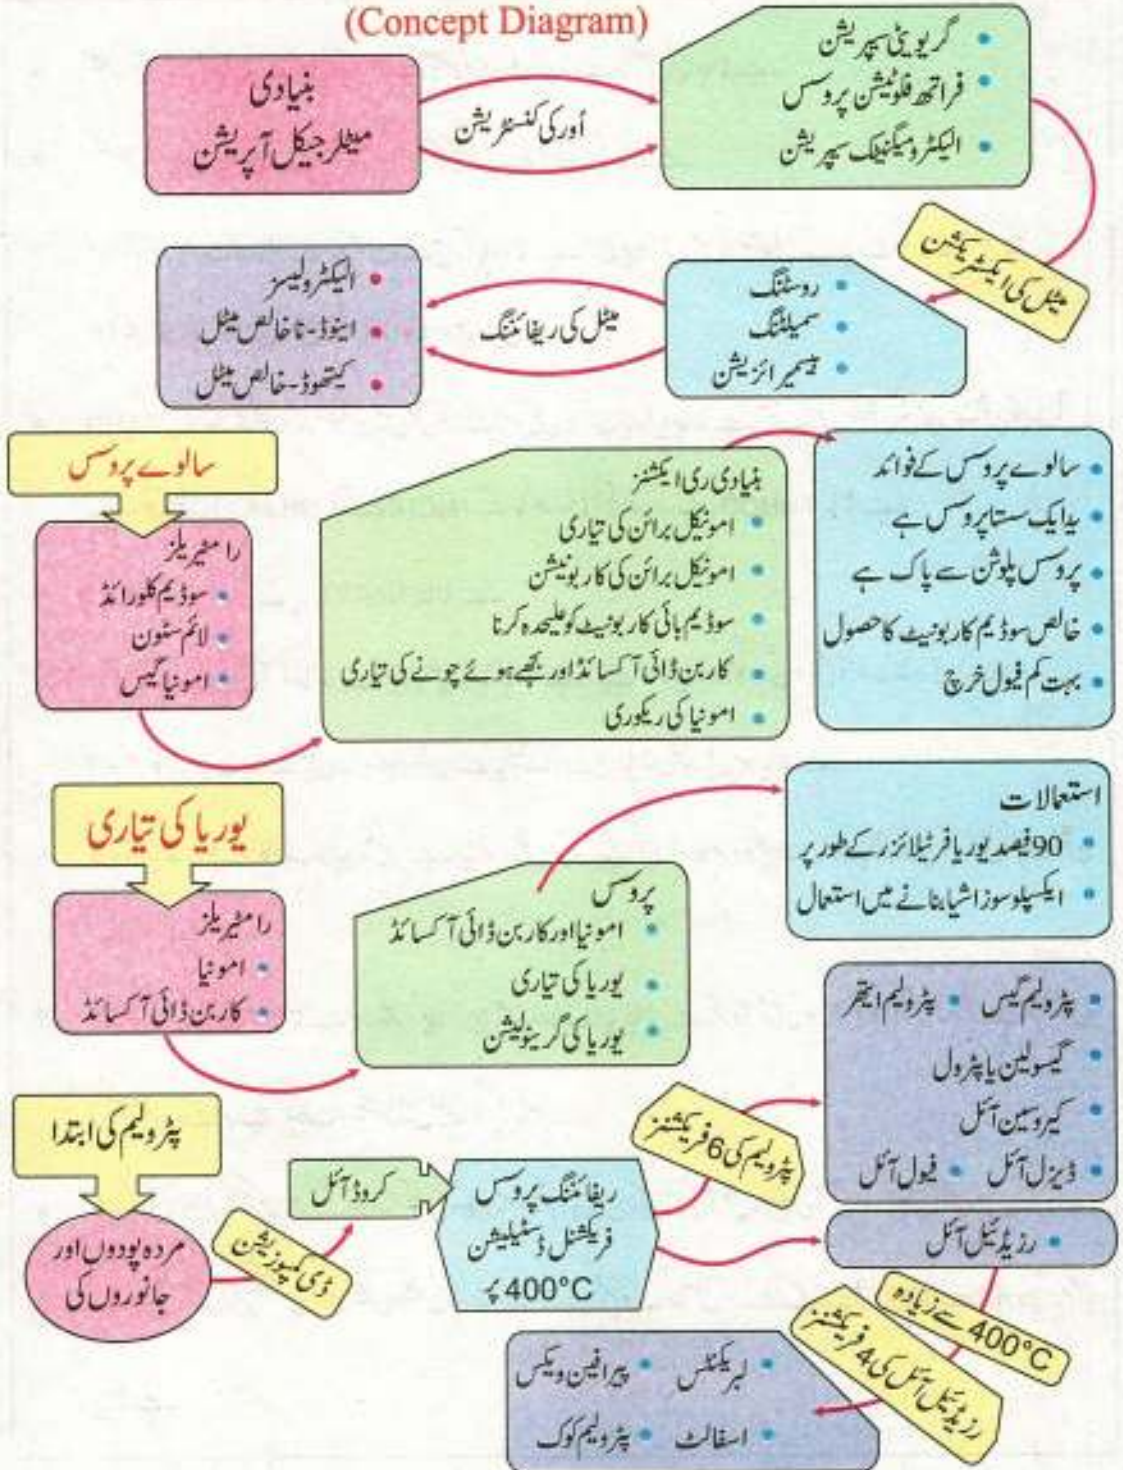 (Concept Diagram)
بنیادی
میٹلرجیکل آپریشن
اَورکی کنسنٹریشن
• گریویٹی سپریشن
• فراتھ فلوٹیشن پروسس
• الیکٹرومیگنیٹک سپریشن
میٹل کی ایکسٹریکشن
• روسٹنگ
• سمیلٹنگ
• بیسیمیرائزیشن
میٹل کی ریفائننگ
• الیکٹرولیسز
• اینوڈ-ناخالص میٹل
• کیتھوڈ-خالص میٹل
سالوے پروسس
رامٹیریلز
• سوڈیم کلورائڈ
• لائم سٹون
• امونیا گیس
بنیادی ری ایکشنز
• امونیکل برائن کی تیاری
• امونیکل برائن کی کاربونیشن
• سوڈیم بائی کاربونیٹ کو علیحدہ کرنا
• کاربن ڈائی آکسائڈ اور بجھے ہوئے چونے کی تیاری
• امونیا کی ریکوری
• سالوے پروسس کے فوائد
• یہ ایک سستا پروسس ہے
• پروسس پلوشن سے پاک ہے
• خالص سوڈیم کاربونیٹ کا حصول
• بہت کم فیول خرچ
یوریا کی تیاری
رامٹیریلز
• امونیا
• کاربن ڈائی آکسائڈ
پروسس
• امونیا اور کاربن ڈائی آکسائڈ
• یوریا کی تیاری
• یوریا کی گرینولیشن
استعمالات
• 90 فیصد یوریا فرٹیلائزر کے طور پر
• ایکسپلوسوز اشیا بنانے میں استعمال
پٹرولیم کی ابتدا
مردہ پودوں اور
جانوروں کی
ڈی کمپوزیشن
کروڈ آئل
ریفائننگ پروسس
فریکشنل ڈسٹیلیشن
400°C پر
پٹرولیم کی 6 فریکشنز
• پٹرولیم گیس • پٹرولیم ایتھر
• گیسولین یا پٹرول
• کیروسین آئل
• ڈیزل آئل • فیول آئل
• رزیڈیئل آئل
400°C سے زیادہ
رزیڈیئل آئل کی 4 فریکشنز
• لبریکنٹس • پیرافین ویکس
• اسفالٹ • پٹرولیم کوک